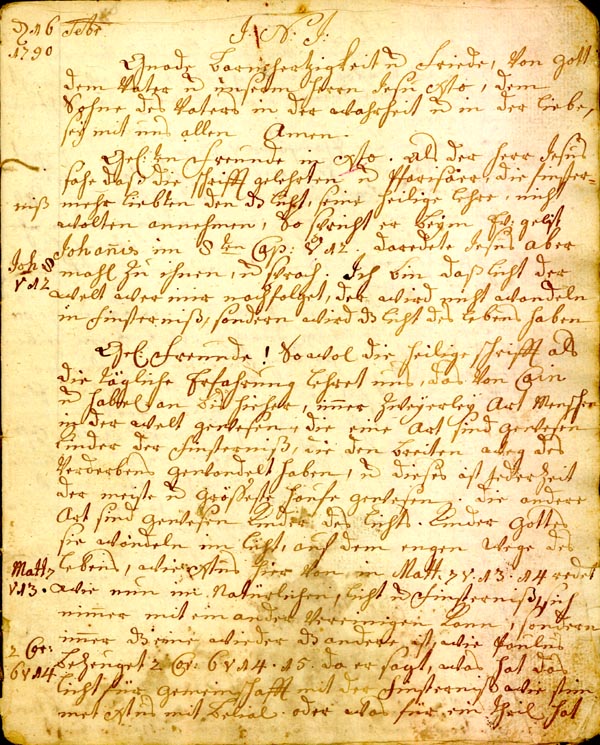 D 16 Febr J. N. J.
1790
Gnade Barmhertzigkeit u Friede, von Gott
dem Vater u unserm Herrn Jesu Xto, dem
Sohne des Vaters in der Wahrheit u in der Liebe,
seÿ mit uns allen Amen.
Gel: Freunde in Xto. Als der Herr Jesus
sahe daß die Schrifft gelehrten u Pharisäer die finster-
niß mehr liebten den dz licht, seine heilige Lehre, nicht
wolten annehmen, so spricht er beym Evgelist
Johannis im 8 ten Cap: V 12. da redete Jesus aber
Joh 8
V 12
mahl zu ihnen, u sprach. Ich bin daß licht der
Welt wer mir nachfolget, der wird nicht wandeln
in Finsterniß, sondern wird dz licht des lebens haben
Gel: Freunde! Sowol die heilige Schrifft als
die tägliche Erfahrung lehret uns, das von Cain
u Habbel an bis hieher, immer zweÿerleÿ Art Menschen
in der Welt gewesen, die eine Art sind gewesen
Kinder der Finsterniß, die den breiten weg des
Verderbens gewandelt haben, u dieses ist jederzeit
der meiste u gröseste Haufe gewesen. die andere
Art sind gewesen Kinder des lichts. Kinder Gottes
sie wandeln im licht, auf dem engen Wege des
Matt 7
V 13.
lebens, wie Xtus hier von in Matt. 7 V. 13. 14 redet
wie nun im Natürlichen, licht u Finsterniß sich
nimmer mit ein ander vereinigen kann, sondern
immer dz eine wieder dz andere ist, wie Paulus
2 Cor:
6 V 14
bezeuget 2 Cor: 6 V 14. 15. da er sagt, was hat das
licht für gemeinschafft mit der Finsterniß wie stim
met Xtus mit Belial oder was für ein theil hat